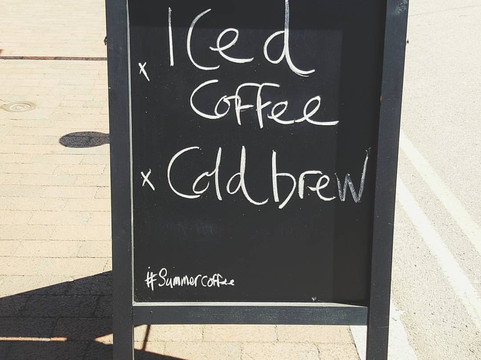 x Iced
Coffee
x Cold brew
#Summercoffee